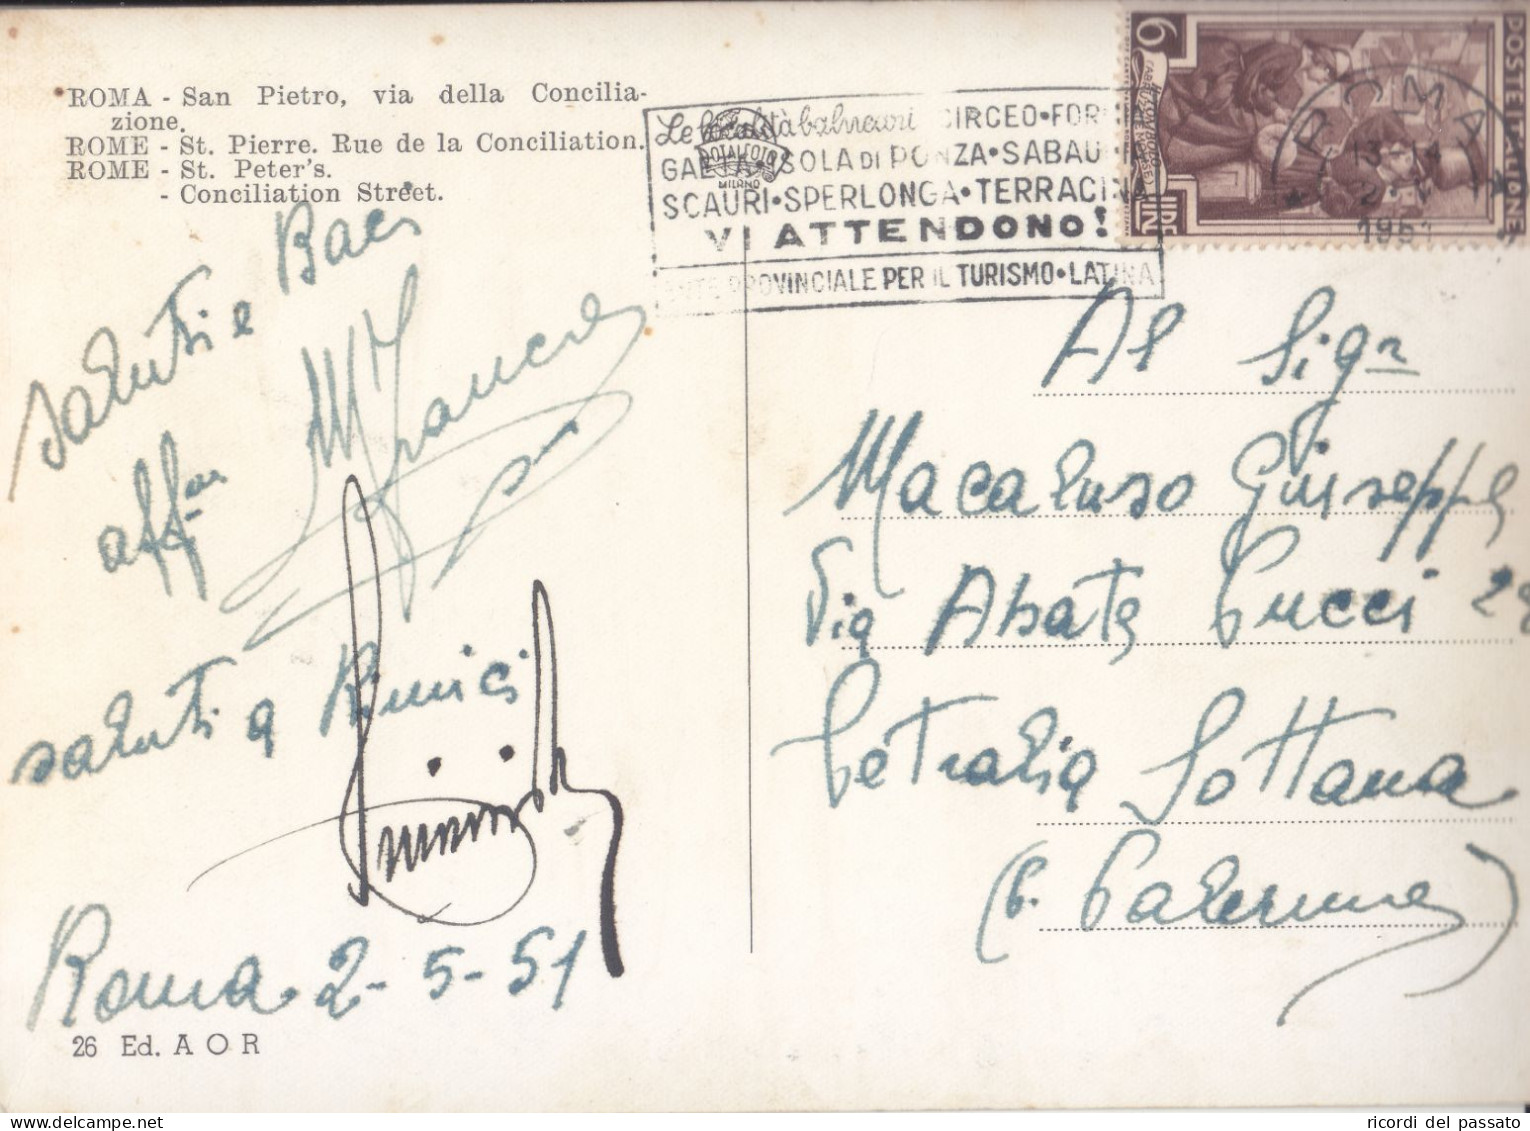 ROMA - San Pietro, via della Concilia-
zione.
ROME - St. Pierre. Rue de la Conciliation.
ROME - St. Peter's.
- Conciliation Street.
Le località balneari CIRCEO•FOR
GAETA•ISOLA DI PONZA•SABAUDIA
SCAURI•SPERLONGA•TERRACINA
VI ATTENDONO!
ENTE PROVINCIALE PER IL TURISMO•LATINA
TOTALFOTO
MILANO
6
LIRE
POSTE ITALIANE
ROMA
1951
saluti e Baci
aff
saluti a Amici
Roma 2-5-51
26 Ed. A O R
Al Sigr
Macaluso Giuseppe
Via Abate Pucci 28
Petralia Sottana
(P. Palermo)
ricordi del passato